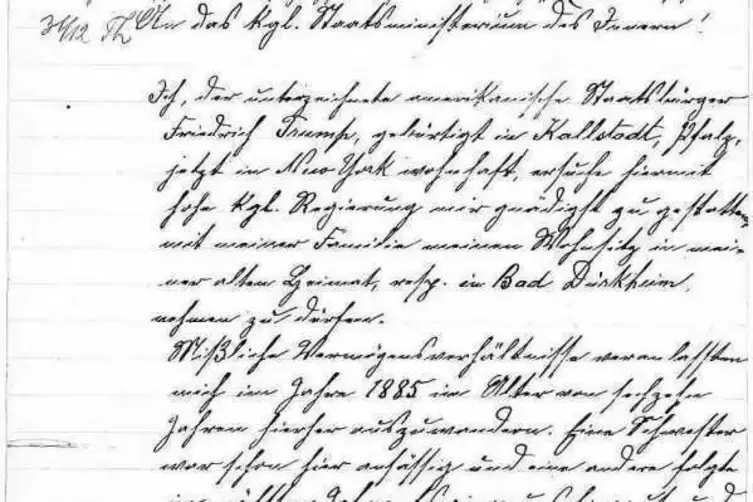 An das Kgl. Staatsministerium des Innern!
Ich, der unterzeichnete amerikanische Staatsbürger
Friedrich Trump, gebürtigt in Kallstadt, Pfalz,
jetzt in New York wohnhaft, ersuche hiermit
hohe Kgl. Regierung mir gnädigst zu gestatten
mit meiner Familie meinen Wohnsitz in mei-
ner alten Heimat, resp. in Bad Dürkheim,
nehmen zu dürfen.
Mißliche Vermögensverhältnisse veranlassten
mich im Jahre 1885 im Alter von sechzehn
Jahren hierher auszuwandern. Eine Schwester
war schon hier ansässig und eine andere folgte